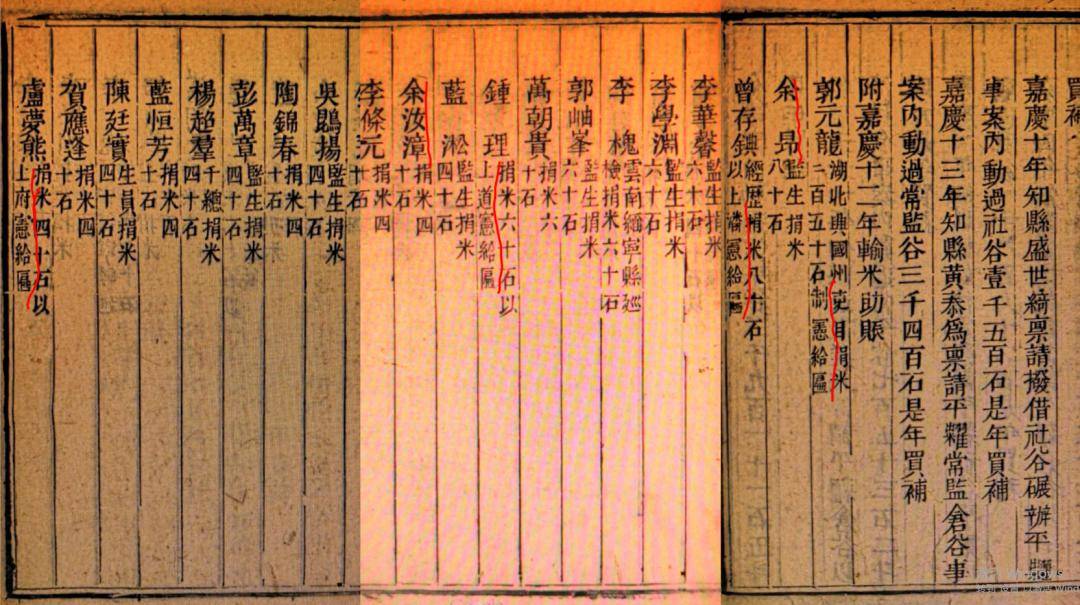 買補
嘉慶十年知縣盛世綺禀請撥借社谷碾辦平糶
事案內動過社谷壹千五百石是年買補
嘉慶十三年知縣黃泰爲禀請平糶常監倉谷事
案內動過常監谷三千四百石是年買補
附嘉慶十二年輸米助賑
郭元龍 湖北興國州吏目捐米二百五十石制憲給匾
余昂 監生捐米八十石
曾存錪 經歷捐米八十石以上藩憲給匾
李華馨 監生捐米六十石
李學淵 監生捐米六十石
李槐 雲南緬寧縣廵檢捐米六十石
郭岫峯 監生捐米六十石
萬朝貴 捐米六十石
鍾理 捐米六十石以上道憲給匾
藍淞 監生捐米四十石
余汝漳 捐米四十石
李條元 捐米四十石
吳鵾揚 監生捐米四十石
陶錦春 捐米四十石
彭萬章 監生捐米四十石
楊超羣 千總捐米四十石
藍恒芳 捐米四十石
陳廷實 生員捐米四十石
賀應逢 捐米四十石
盧夢熊 捐米四十石以上府憲給匾